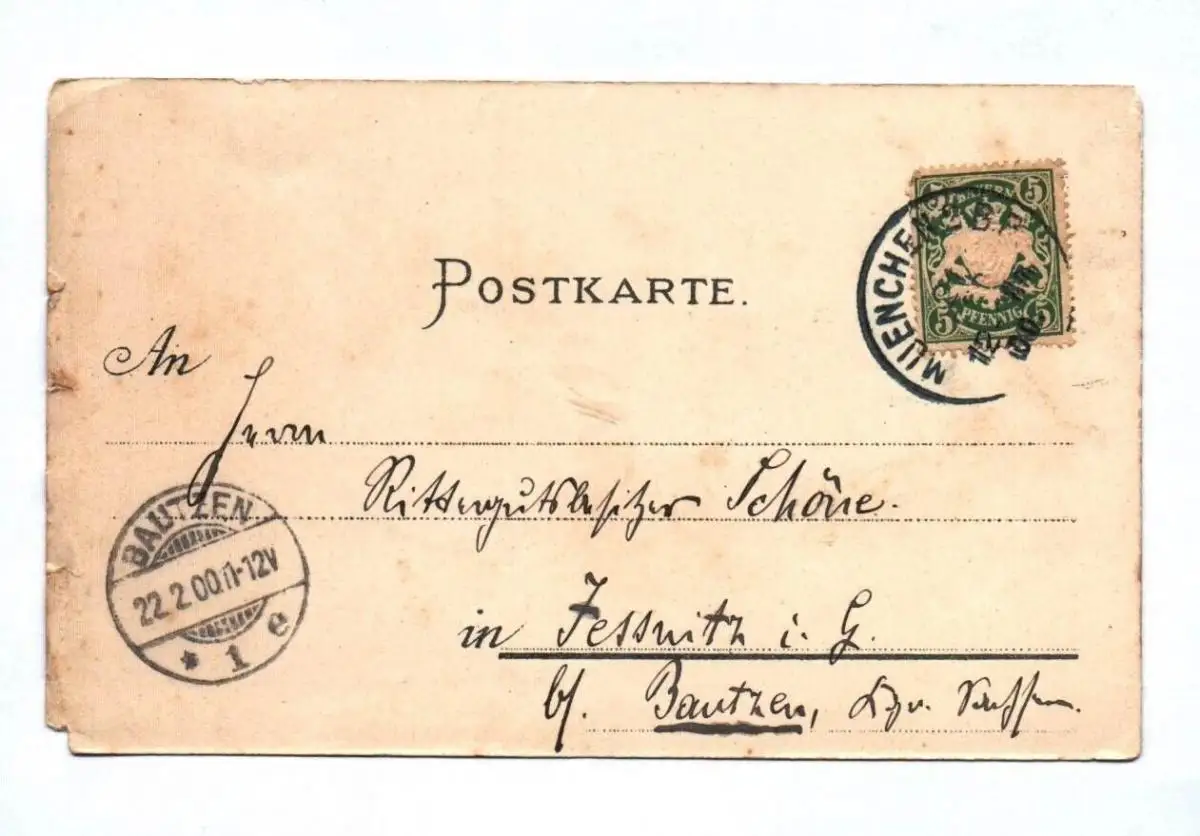 POSTKARTE.
BAYERN
5 5
5 PFENNIG 5
MUENCHEN 2 B.P.
00
An
Herrn
Rittergutsbesitzer Schöne.
in Jessnitz i. G.
b/. Bautzen, Kgr. Sachsen.
BAUTZEN
22.2.00.11-12V
* 1 e